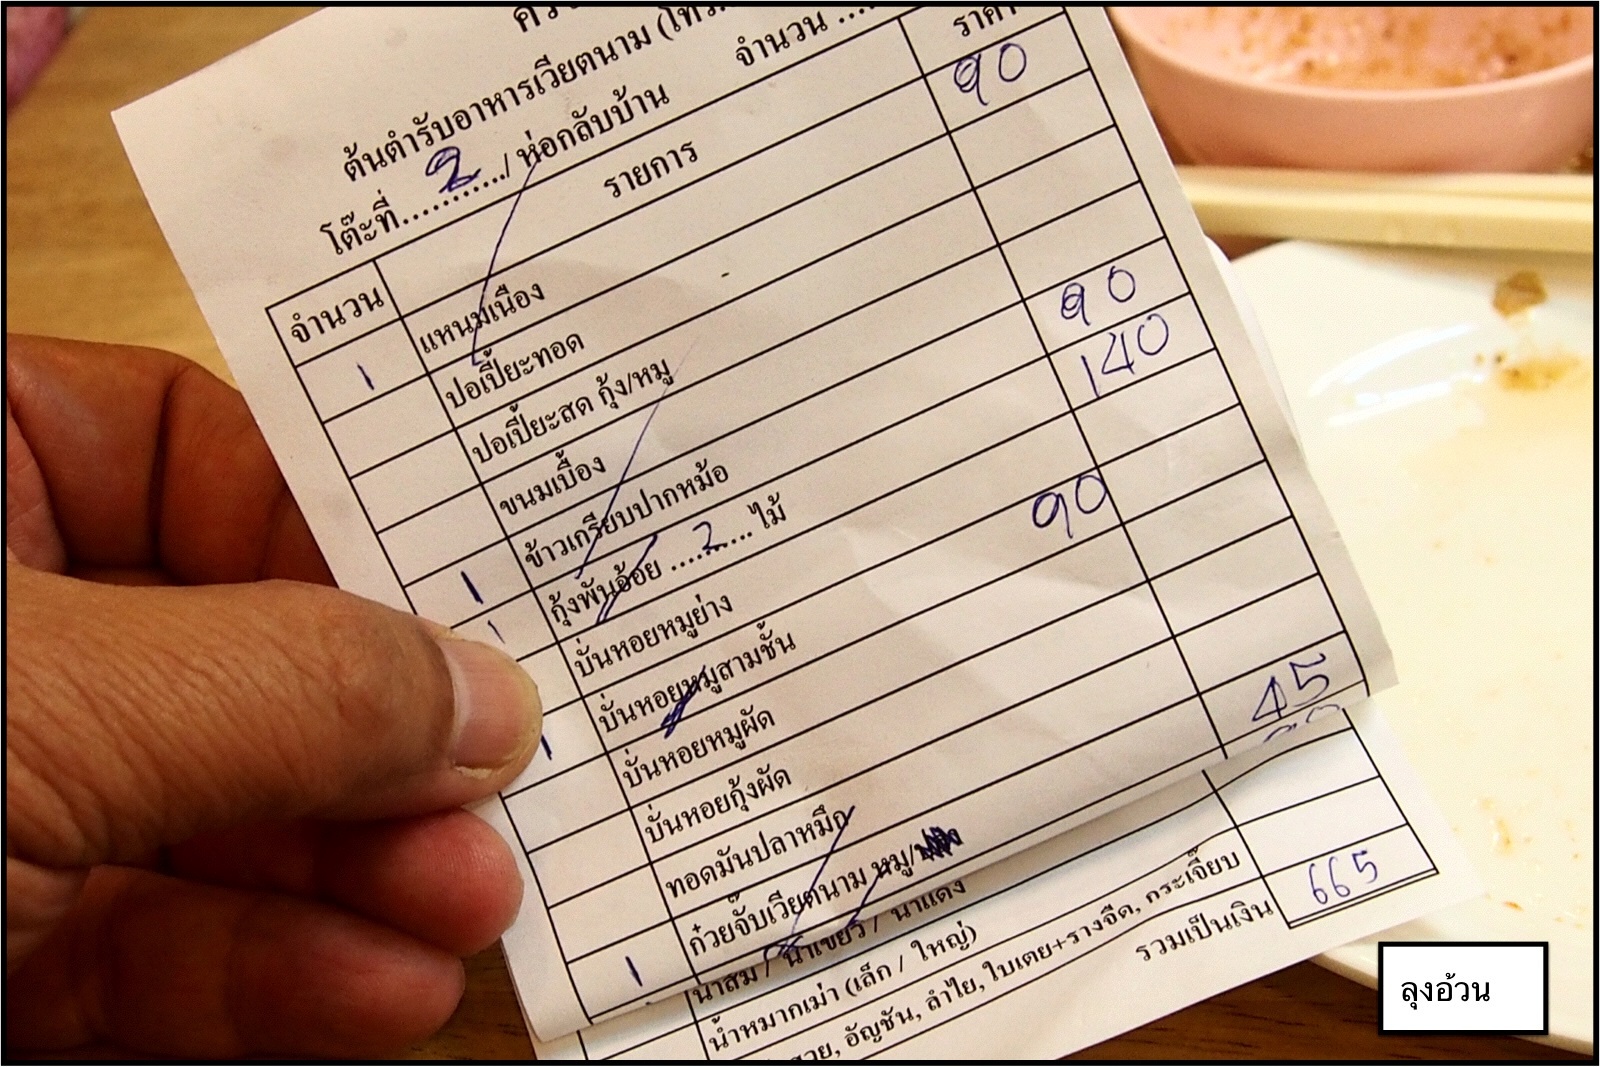 ต้นตำรับอาหารเวียตนาม (โทร.
โต๊ะที่.....2...../ ห่อกลับบ้าน จำนวน ....
จำนวน รายการ ราคา
1 แหนมเนือง 90
ปอเปี๊ยะทอด
ปอเปี๊ยะสด กุ้ง/หมู
ขนมเบื้อง
1 ข้าวเกรียบปากหม้อ 90
1 กุ้งพันอ้อย ....2.... ไม้ 140
บั่นหอยหมูย่าง
1 บั่นหอยหมูสามชั้น 90
บั่นหอยหมูผัด
บั่นหอยกุ้งผัด
ทอดมันปลาหมึก
1 ก๋วยจั๊บเวียตนาม หมู/ 45
น้ำส้ม / น้ำเขียว / น้ำแดง
น้ำหมากเม่า (เล็ก / ใหญ่)
อัญชัน, ลำไย, ใบเตย+รางจืด, กระเจี๊ยบ
รวมเป็นเงิน 665
ลุงอ้วน